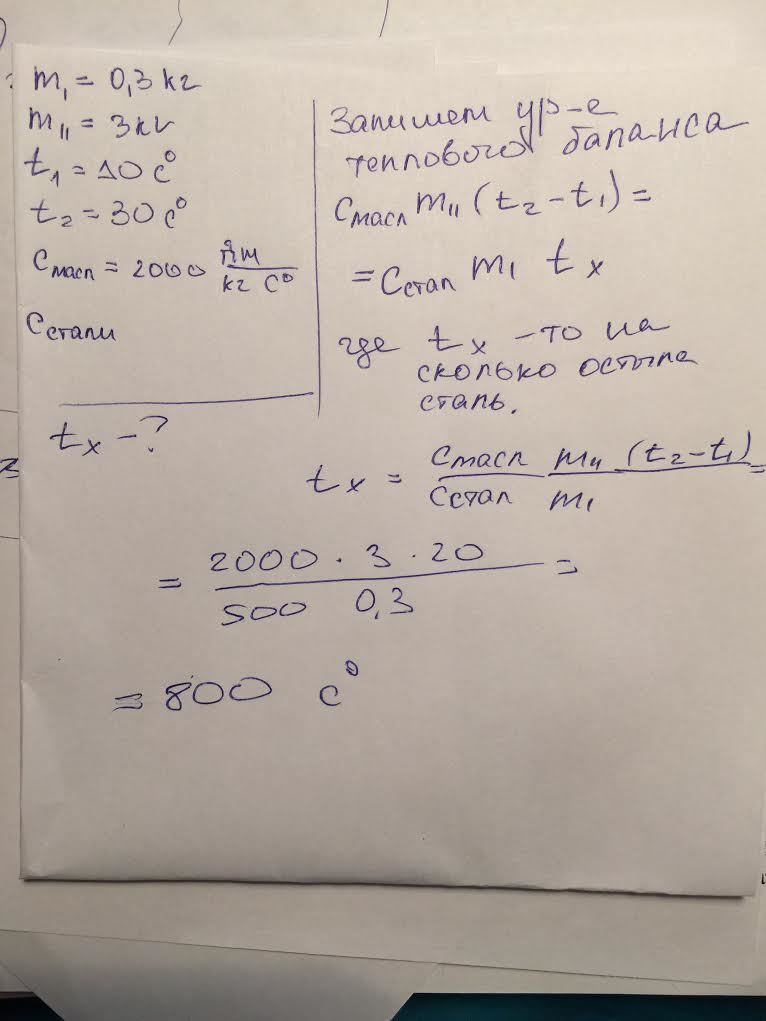 m₁ = 0,3 кг
m₁₁ = 3 кг
t₁ = 10 c°
t₂ = 30 c°
Cмасл = 2000 Дж / кг C°
Cстали
tₓ - ?
Запишем ур-е
теплового баланса
Cмасл m₁₁ (t₂ - t₁) =
= Cстал m₁ tₓ
где tₓ - то на
сколько остыла
сталь.
tₓ = Cмасл m₁₁ (t₂ - t₁) / Cстал m₁ =
= 2000 · 3 · 20 / 500 0,3 =
= 800 c°